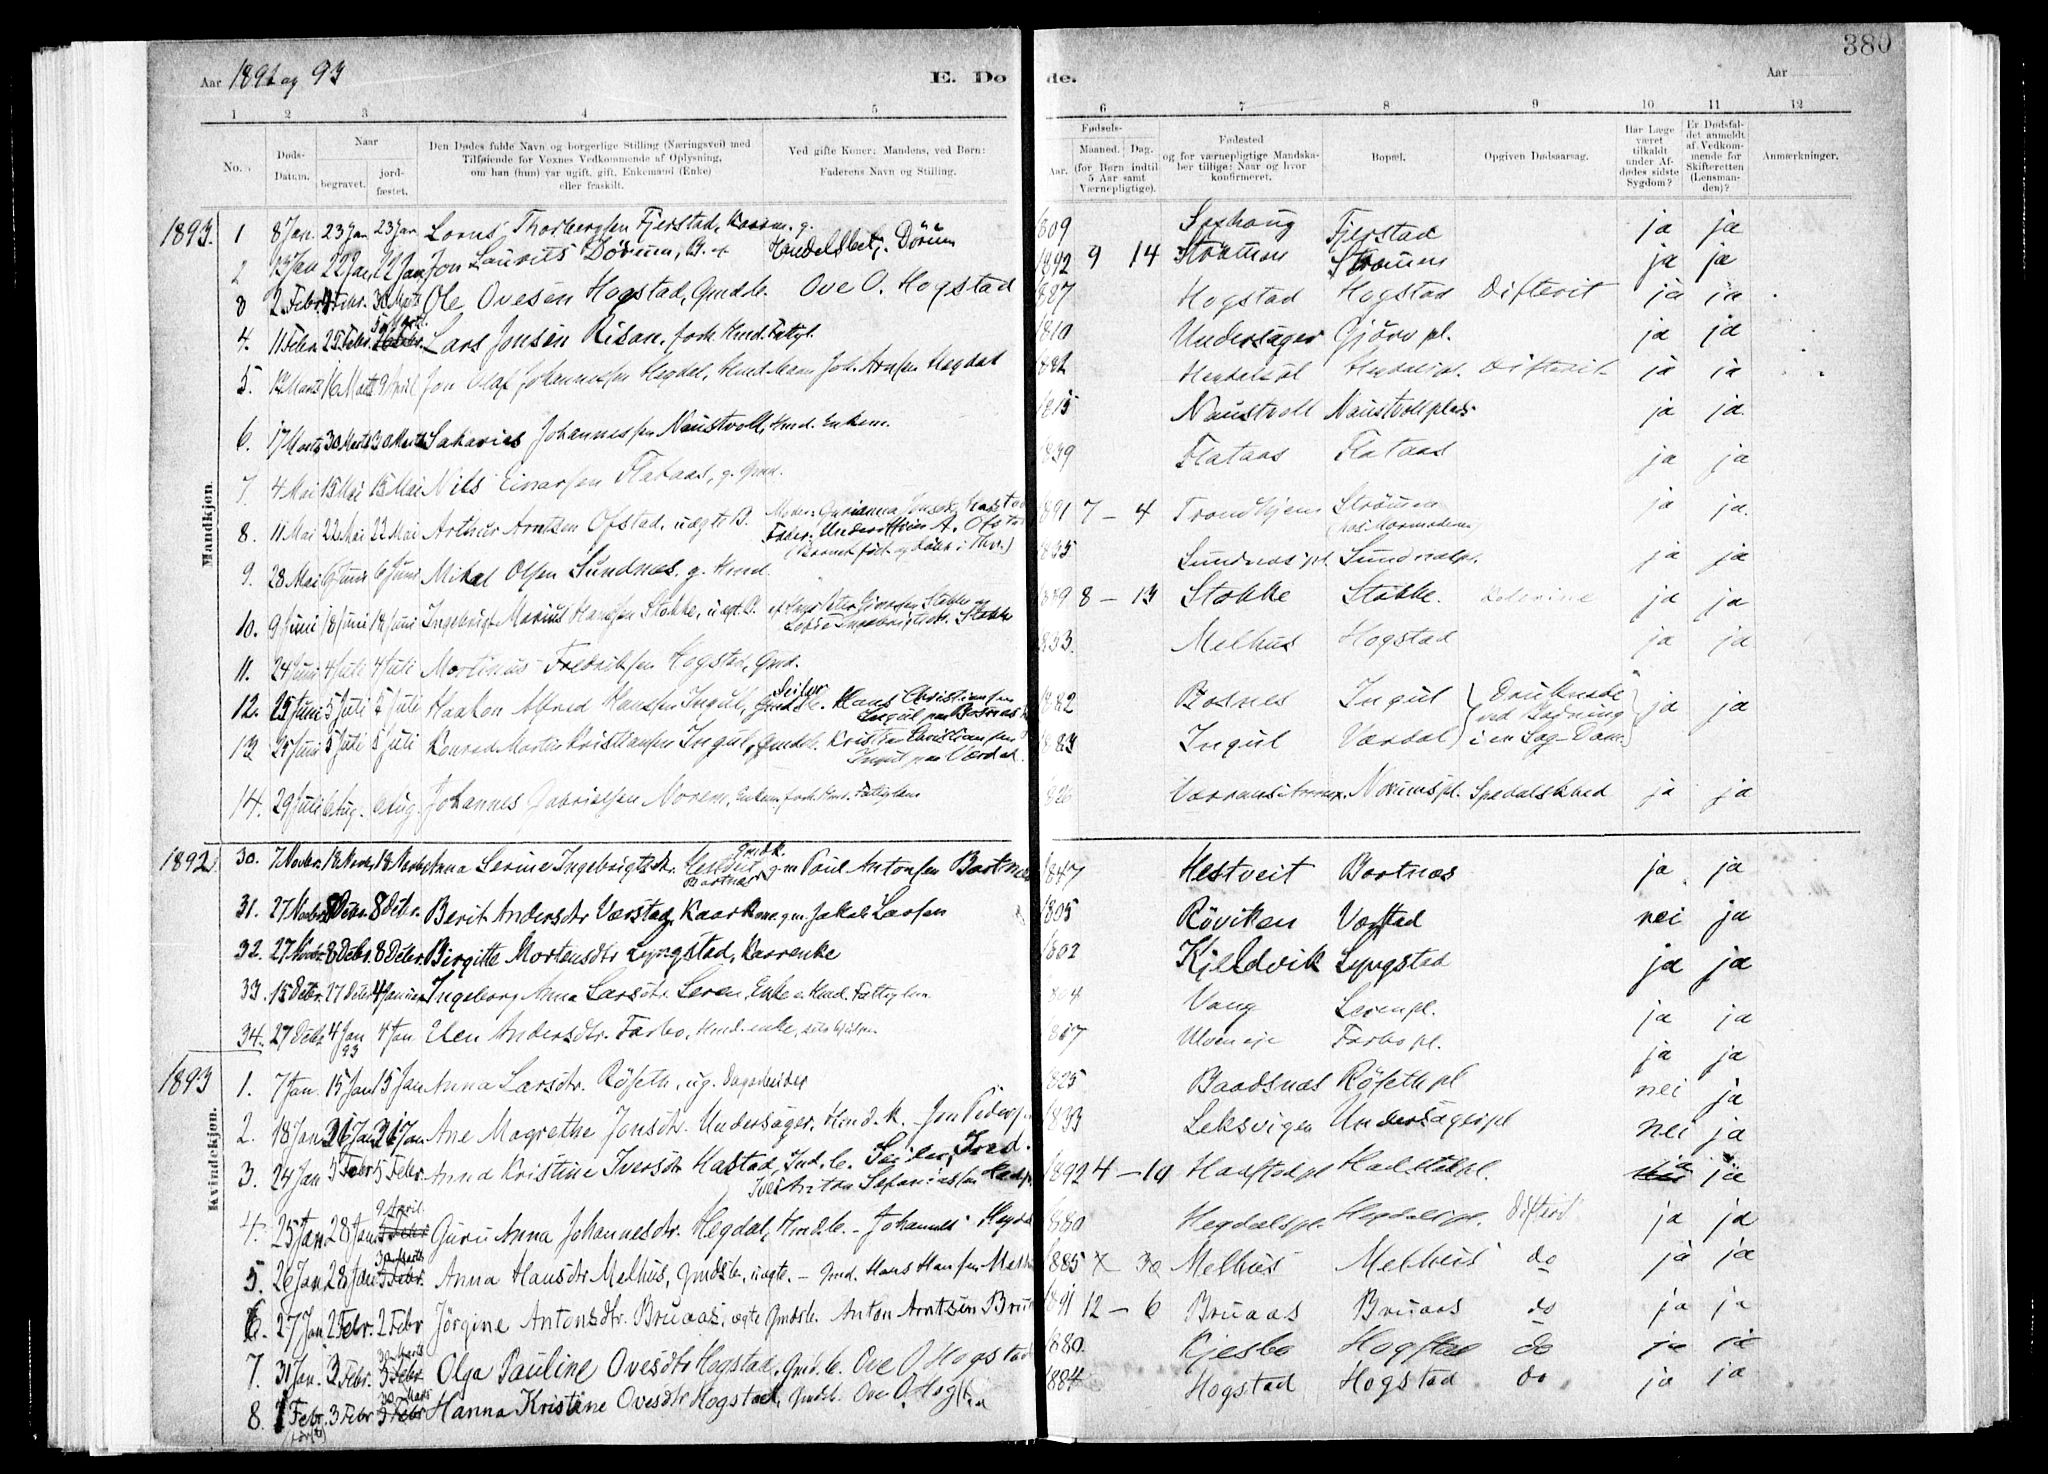 380
Aar 1892 og 93
E. Døde.
Aar
1 2 3 4 5 6 7 8 9 10 11 12
No. Døds-Datum. Naar begravet. jordfæstet. Den Dødes fulde Navn og borgerlige Stilling (Næringsvei) med Tilføiende for Voxnes Vedkommende af Oplysning, om han (hun) var ugift, gift, Enkemand (Enke) eller fraskilt. Ved gifte Koner: Mandens, ved Børn: Faderens Navn og Stilling. Aar. Fødsels- Maaned. Dag. (for Børn indtil 5 Aar samt Værnepligtige). Fødested og for værnepligtige Mandskaber tillige: Naar og hvor konfirmeret. Bopæl. Opgiven Dødsaarsag. Har Læge været tilkaldt under Afdødes sidste Sygdom? Er Dødsfaldet anmeldt af Vedkommende for Skifteretten (Lensmanden)? Anmærkninger.
Mandkjøn.
1893. 1 8 Jan. 23 Jan 23 Jan Thorbergsen Fjerstad, g. 809 Fjerstad ja ja
2 22 Jan 22 Jan Jon Laurits Dörum, Dörum 1892 9 14 Strömmen Strömmen ja ja
3 2 Febr. Ole Ovesen Hogstad, Gmdb. Ove O. Hogstad 887 Hogstad Hogstad Difterit ja ja
4. 11 Febr. 25 Febr. 5 Marts Lars Jonsen Risan, forh. Hmd. Fattigl. 1810 Undersager Gjörv pl. ja ja
5. 12 Marts 16 Marts 9 April Jon Olaf Johannessen Hegdal, Joh. Arnsen Hegdal 882 Hegdalspl. Hegdalspl. Difterit ja ja
6. 17 Marts 30 Marts 30 Marts Sakarias Johannessen Naustvoll, Hmd. Enkem. 1815 Naustvoll Naustvollplads ja ja
7. 4 Mai 15 Mai 15 Mai Nils Einarsen Flataas, g. Gmd. 839 Flataas Flataas ja ja
8. 11 Mai 22 Mai 22 Mai Arthur Arntsen Ofstad, uægte B. Moder: Gurianna
Fader: A. Ofstad
891 7 – 4 Trondhjem Strömmen ja ja.
(hos Mormoderen)
9. 28 Mai 6 Juni 6 Juni Mikal Olsen Sundnes, g. Hmd. 835 Sundnespl. Sundnespl. ja ja
10. 9 Juni 18 Juni 18 Juni Ingebrigt Marius Hansen Stokke, Stokke 8 – 13 Stokke Stokke. ja ja
11. 24 Juni 4 Juli 4 Juli Martinus Fredriksen Hogstad, Gmd. 833. Melhus Hogstad ja ja
12. 25 Juni 5 Juli 5 Juli Haakon Alfred Hansen Ingul, Gmdb. Seiler Hans Christiansen
Ingul paa Bosnes
1882 Bosnes Ingul Druknede ved Badning ja ja
13 25 Juni 5 Juli 5 Juli Konrad Martin Kristiansen Ingul, Gmdb. Kristian Christiansen
Ingul paa Værdal.
1883 Ingul Værdal i en Sag-Dam.
14. 29 Juli 6 Aug. 6 Aug. Johannes Gabrielsen Norem, Enkem. forh. Hmd. Fattiglem 826 Noremspl. Spedalskhed ja ja
1892. 30. 7 Novbr. 18 Novbr. 18 Novbr. Anna Serine Ingebrigtsdtr. Hestveit Bartnæs, Gmdk. g. m Paul Antonsen Bartnes 1847 Hestveit Bartnæs ja ja
31. 27 Novbr. 8 Debr. 8 Debr. Berit Andersdtr Værstad, Kaarkone g. m. Jakob Larsen 1805 Röviken Værstad nei ja
32. 27 Novbr 8 Debr. 8 Debr. Birgitte Mortensdtr Lyngstad, Kaarenke 1802 Kjeldvik Lyngstad ja ja
33. 15 Debr. 27 Debr 4 Januar Ingeborg Anna Larsdtr. Seren, Enke e. Hmd. Fattiglem. 804 Vang Serenpl. ja ja
34. 27 Debr. 4 Jan 93 4 Jan Elen Andersdtr. Farbo, Hmd. enke, 1817 Farbopl. ja ja
Kvindekjøn.
1893 1. 7 Jan. 15 Jan 15 Jan Anna Larsdtr. Röseth, ug. Dagarbeider 1825 Baadsnæs Röseth pl nei ja
2. 18 Jan 26 Jan 26 Jan Ane Magrethe Jonsdtr. Undersager, Hmd. k. Jon Peders 1833 Leksvigen Undersagerpl nei ja
3. 24 Jan 5 Febr. 5 Febr. Anna Kristine Iversdtr Hastad, Ind. b. Seiler, Ind.
Iver Anton Sefaniassen
1892 4 – 19 ja ja
4. 25 Jan 28 Jan 9 April. Guru Anna Johannesdtr. Hegdal, Hmdb. – Johannes Hegdal 1880 Hegdalspl. Hegdalspl. Difterit ja ja
5. 26 Jan 28 Jan 30 Marts Anna Hansdtr Melhus, Gmdsb. uægte. – Gmd. Hans Hansen Melhus 1885 X 30 Melhus Melhus do ja ja
6. 27 Jan 2 Febr. 2 Febr Jörgine Antonsdtr. Bruaas, ægte Gmdsb. Anton Arntsen Bru 1891 12 – 6 Bruaas Bruaas do ja ja
7. 31 Jan. 3 Febr. 30 Marts Olga Pauline Ovesdtr Hogstad, Gmd. b. Ove O. Hogstad 1880 Kjesbo Hogstad do ja ja
8. 1 Febr. 3 Febr 30 Mars Hanna Kristine Ovesdtr Hogstad, Gmdb. Ove O. Hogstad 1884 Hogstad Hogstad do ja ja